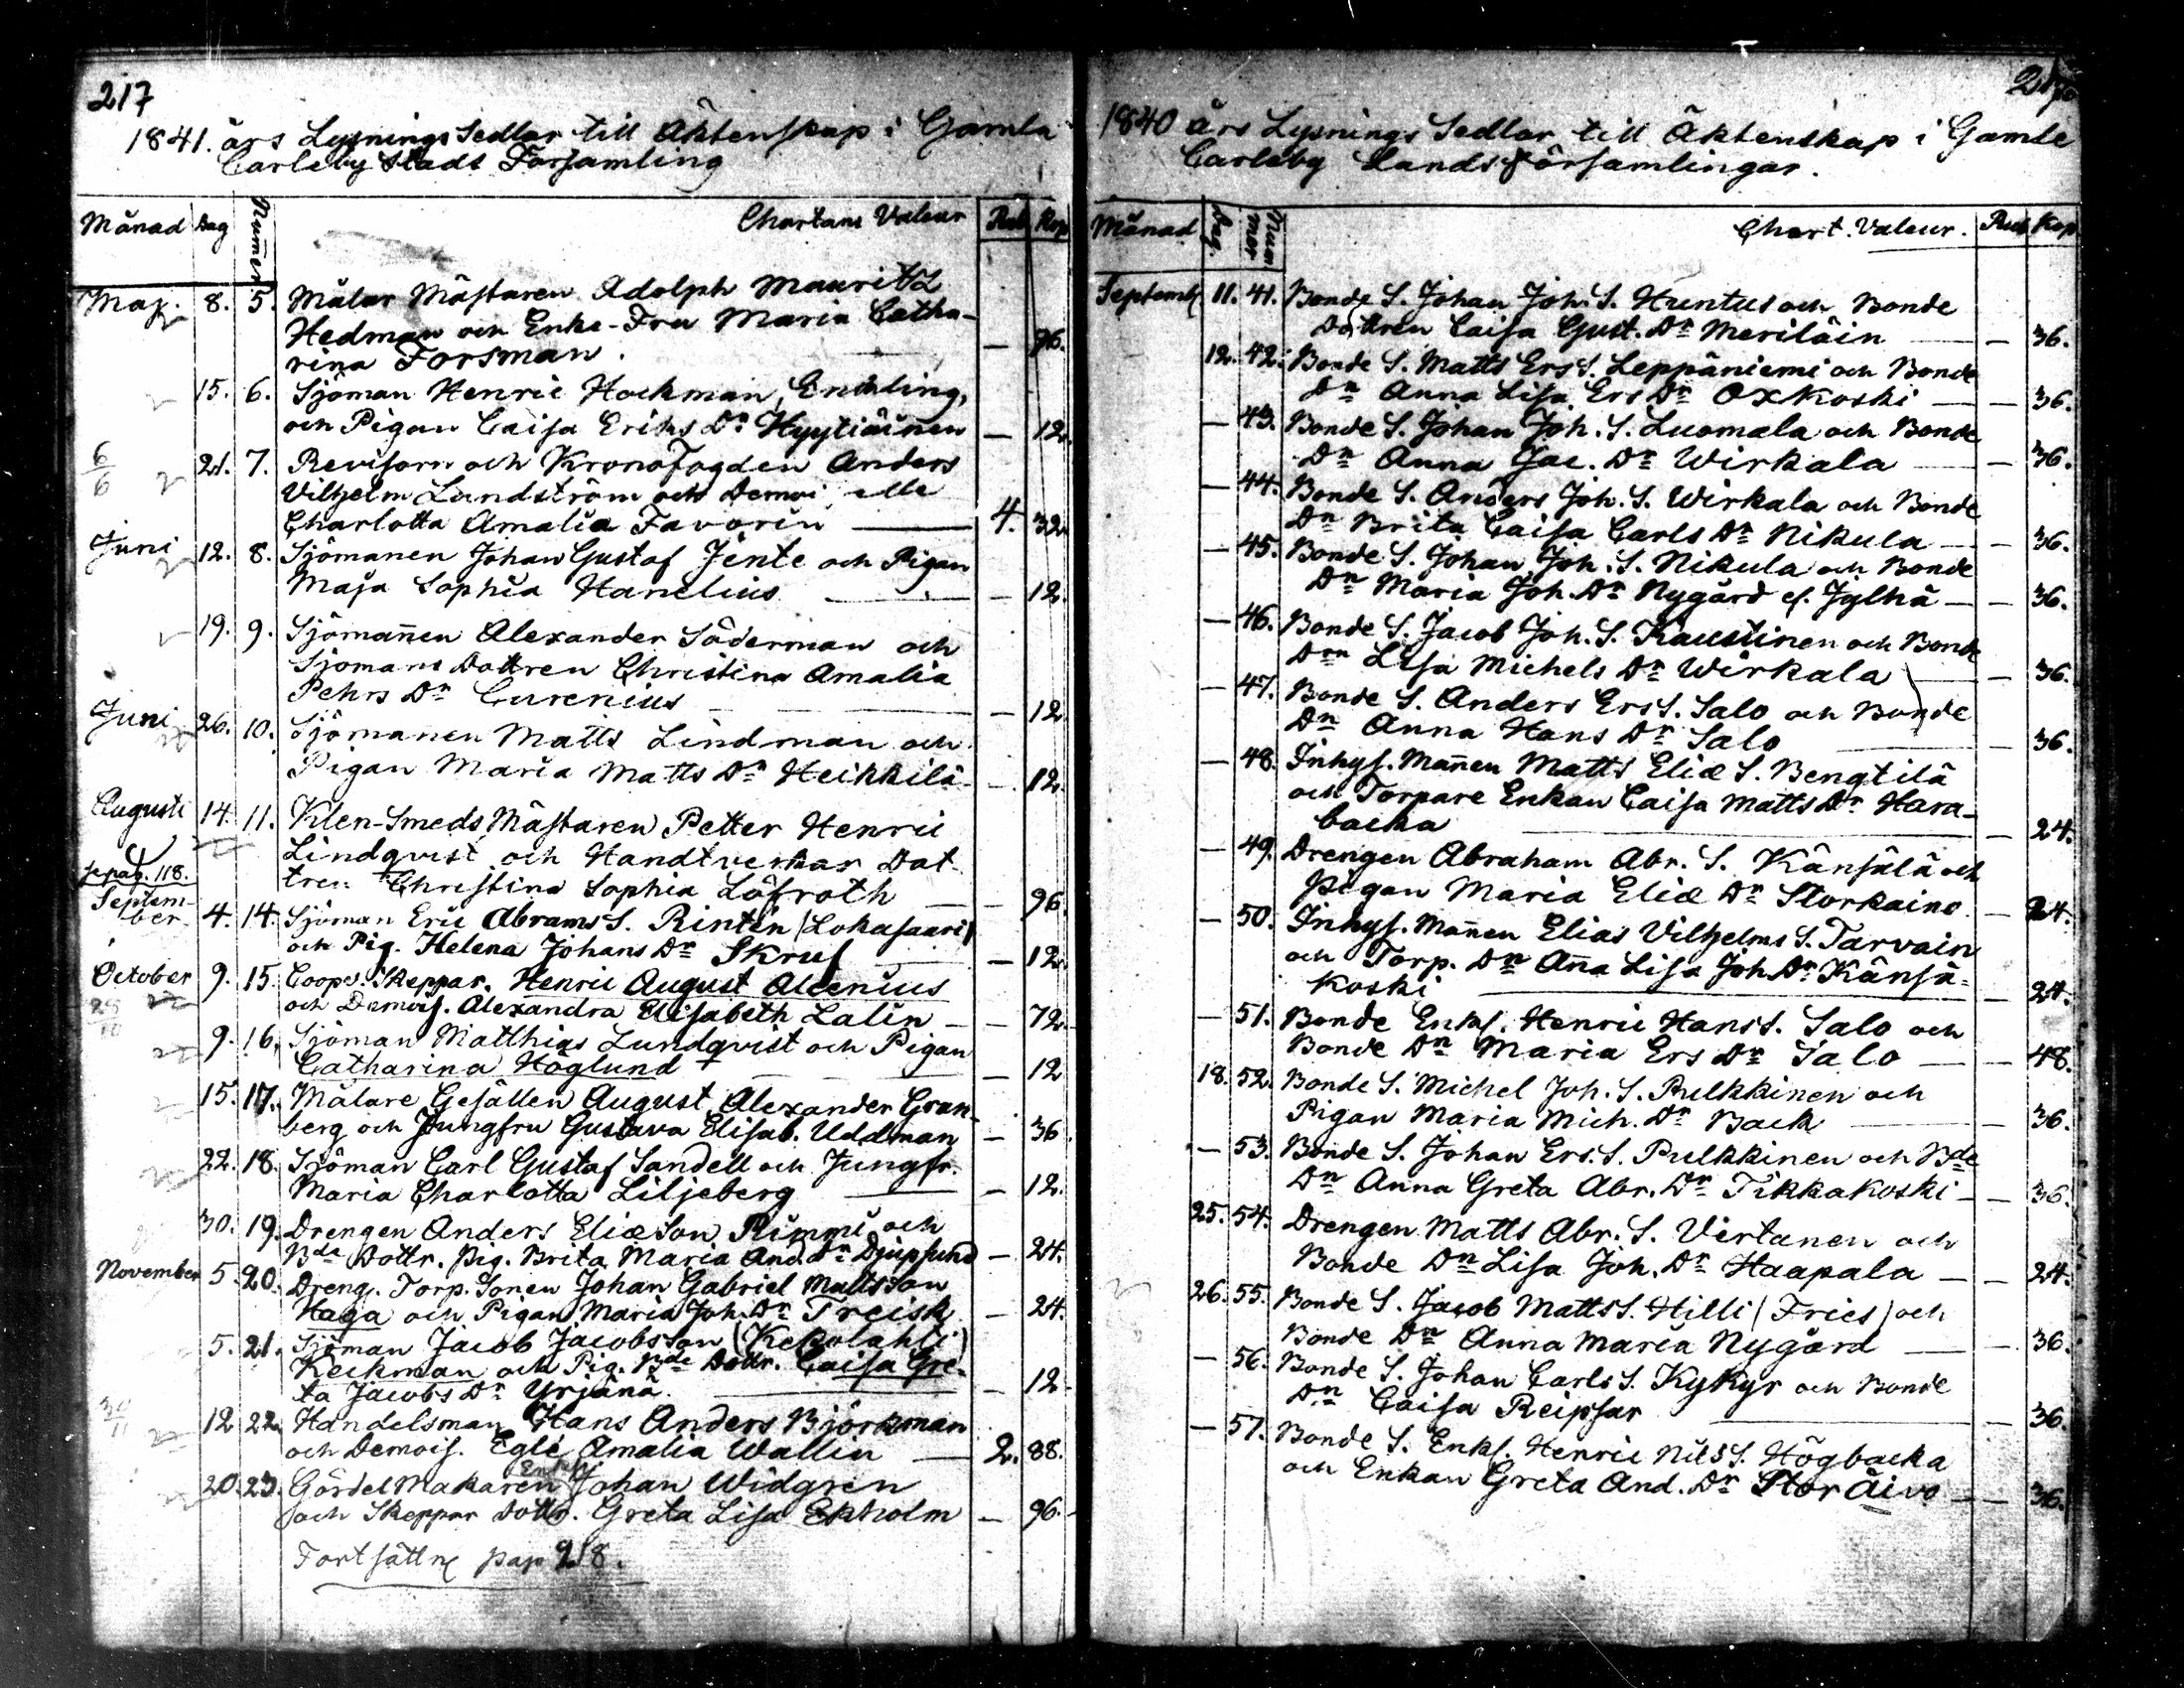 217
1841. års Lysnings Sedlar till Äktenskap i Gamla
Carleby Stads Församling
Månad Dag Numer Chartans Valeur Rub Kop
Maj. 8. 5. Målar Mästaren Adolph Mauritz
Hedman och Enke-Fru Maria Catha-
rina Forsman. — 96.
15. 6. Sjöman Henric Hockman, Enkling,
och Pigan Caisa Eriks Dr Hyytiäinen — 12.
6/6 21. 7. Revisorn och Kronofogden Anders
Vilhelm Lundström och Demoi elle
Charlotta Amalia Favorin — 4. 32.
Juni 12. 8. Sjömanen Johan Gustaf Jente och Pigan
Maja Sophia Hanelius — 12.
19. 9. Sjömanen Alexander Söderman och
Sjömans Dottren Christina Amalia
Pehrs Dr Curenius — 12.
Juni 26. 10. Sjömanen Matts Lindman och
Pigan Maria Matts Dr Heikkilä — 12.
Augusti 14. 11. Klen-Smeds Mästaren Petter Henric
Lindqvist och Handtverkar Dot-
tren Christina Sophia Löfroth — 96.
se pag. 118.
Septem-
ber 4. 14. Sjöman Eric Abrams S. Rintén (Lokasaari)
och Pig. Helena Johans Dr Skruf — 12.
October 9. 15. Coopv. Skeppar. Henric August Alcenius
och Demois. Alexandra Elisabeth Lalin — 72.
9. 16. Sjöman Matthias Lundqvist och Pigan
Catharina Höglund — 12
15. 17. Målare Gesällen August Alexander Gran-
berg och Jungfru Gustava Elisab. Uddman — 36.
22. 18. Sjöman Carl Gustaf Sandell och Jungfr.
Maria Charlotta Liljeberg — 12.
30. 19. Drengen Anders Eliæ Son Rimmi och
Bde Dottr. Pig. Brita Maria And. Dr Djupsund — 24.
November 5. 20. Dreng. Torp. Sonen Johan Gabriel Mattsson
Haga och Pigan Maria Joh. Dr Treisk — 24.
5. 21. Sjöman Jacob Jacobsson (Kekolahti)
Keckman och Pig. Bde Dottr. Caisa Gre-
ta Jacobs Dr Yrjänä. — 12.
30/11 12 22. Handelsman Hans Anders Björkman
och Demois. Eglé Amalia Wallin — 2. 88.
20. 23. Gördel Makaren Enkl. Johan Widgren
och Skeppar Dottr. Greta Lisa Ekholm — 96.
Fortsättn pag 218.
1840 års Lysnings Sedlar till Äktenskap i Gamle
Carleby Lands Församlingar.
Månad Dag. Num mor Chart. Valeur. Rub Kop
Septemb. 11. 41. Bonde S. Johan Joh. S. Huntus och Bonde
Dottren Caisa Gust. Dr Meriläin — 36.
12. 42. Bonde S. Matts Ers S. Leppäniemi och Bonde
Dn Anna Lisa Ers Dr Oxkoski — 36.
— 43. Bonde S. Johan Joh. S. Luomala och Bonde
Dn Anna Jac. Dr Wirkala — 36.
— 44. Bonde S. Anders Joh. S. Wirkala och Bonde
Dn Brita Caisa Carls Dr Nikula — 36.
— 45. Bonde S. Johan Joh. S. Nikula och Bonde
Dn Maria Joh. Dr Nygård el. Jylhä — 36.
— 46. Bonde S. Jacob Joh. S. Kaustinen och Bonde
Drn Lisa Michels Dr Wirkala — 36.
— 47. Bonde S. Anders Ers S. Salo och Bonde
Dn Anna Hans Dr Salo — 36.
— 48. Inhys. Mannen Matts Eliæ S. Bengtilä
och Torpare Enkan Caisa Matts Dr Hara-
backa — 24.
— 49. Drengen Abraham Abr. S. Känsälä och
Pigan Maria Eliæ Dr Storkaino — 24.
— 50. Inhys. Mannen Elias Vilhelms S. Tarvain
och Torp. Dn Anna Lisa Joh Dr Känsä-
koski — 24.
— 51. Bonde Enkl. Henric Hans S. Salo och
Bonde Dn Maria Ers Dr Salo — 48.
18. 52. Bonde S. Michel Joh. S. Pulkkinen och
Pigan Maria Mich. Dr Back — 36.
— 53. Bonde S. Johan Ers. S. Pulkkinen och Bde
Dn Anna Greta Abr. Dr Tikkakoski — 36.
25. 54. Drengen Matts Abr. S. Virtanen och
Bonde Dn Lisa Joh. Dr Haapala — 24.
26. 55. Bonde S. Jacob Matts S. Hilli (Fries) och
Bonde Dn Anna Maria Nygård — 36.
— 56. Bonde S. Johan Carls S. Kykyr och Bonde
Dn Caisa Reipsar — 36.
— 57. Bonde S. Enkl. Henric Nils S. Högbacka
och Enkan Greta And. Dr Stor Äivo — 36.